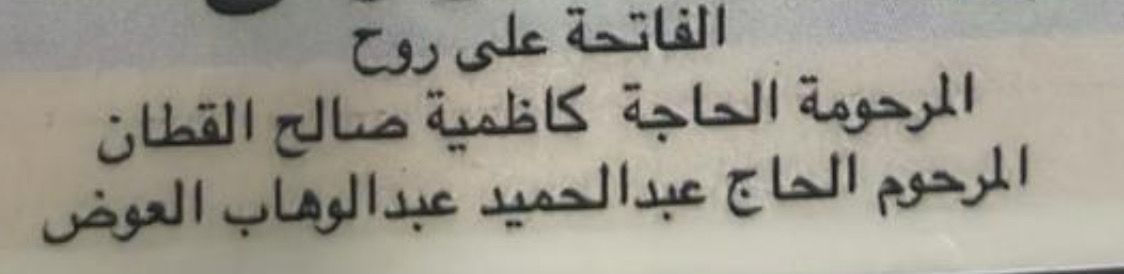 الفاتحة على روح
المرحومة الحاجة كاظمية صالح القطان
المرحوم الحاج عبدالحميد عبدالوهاب العوض